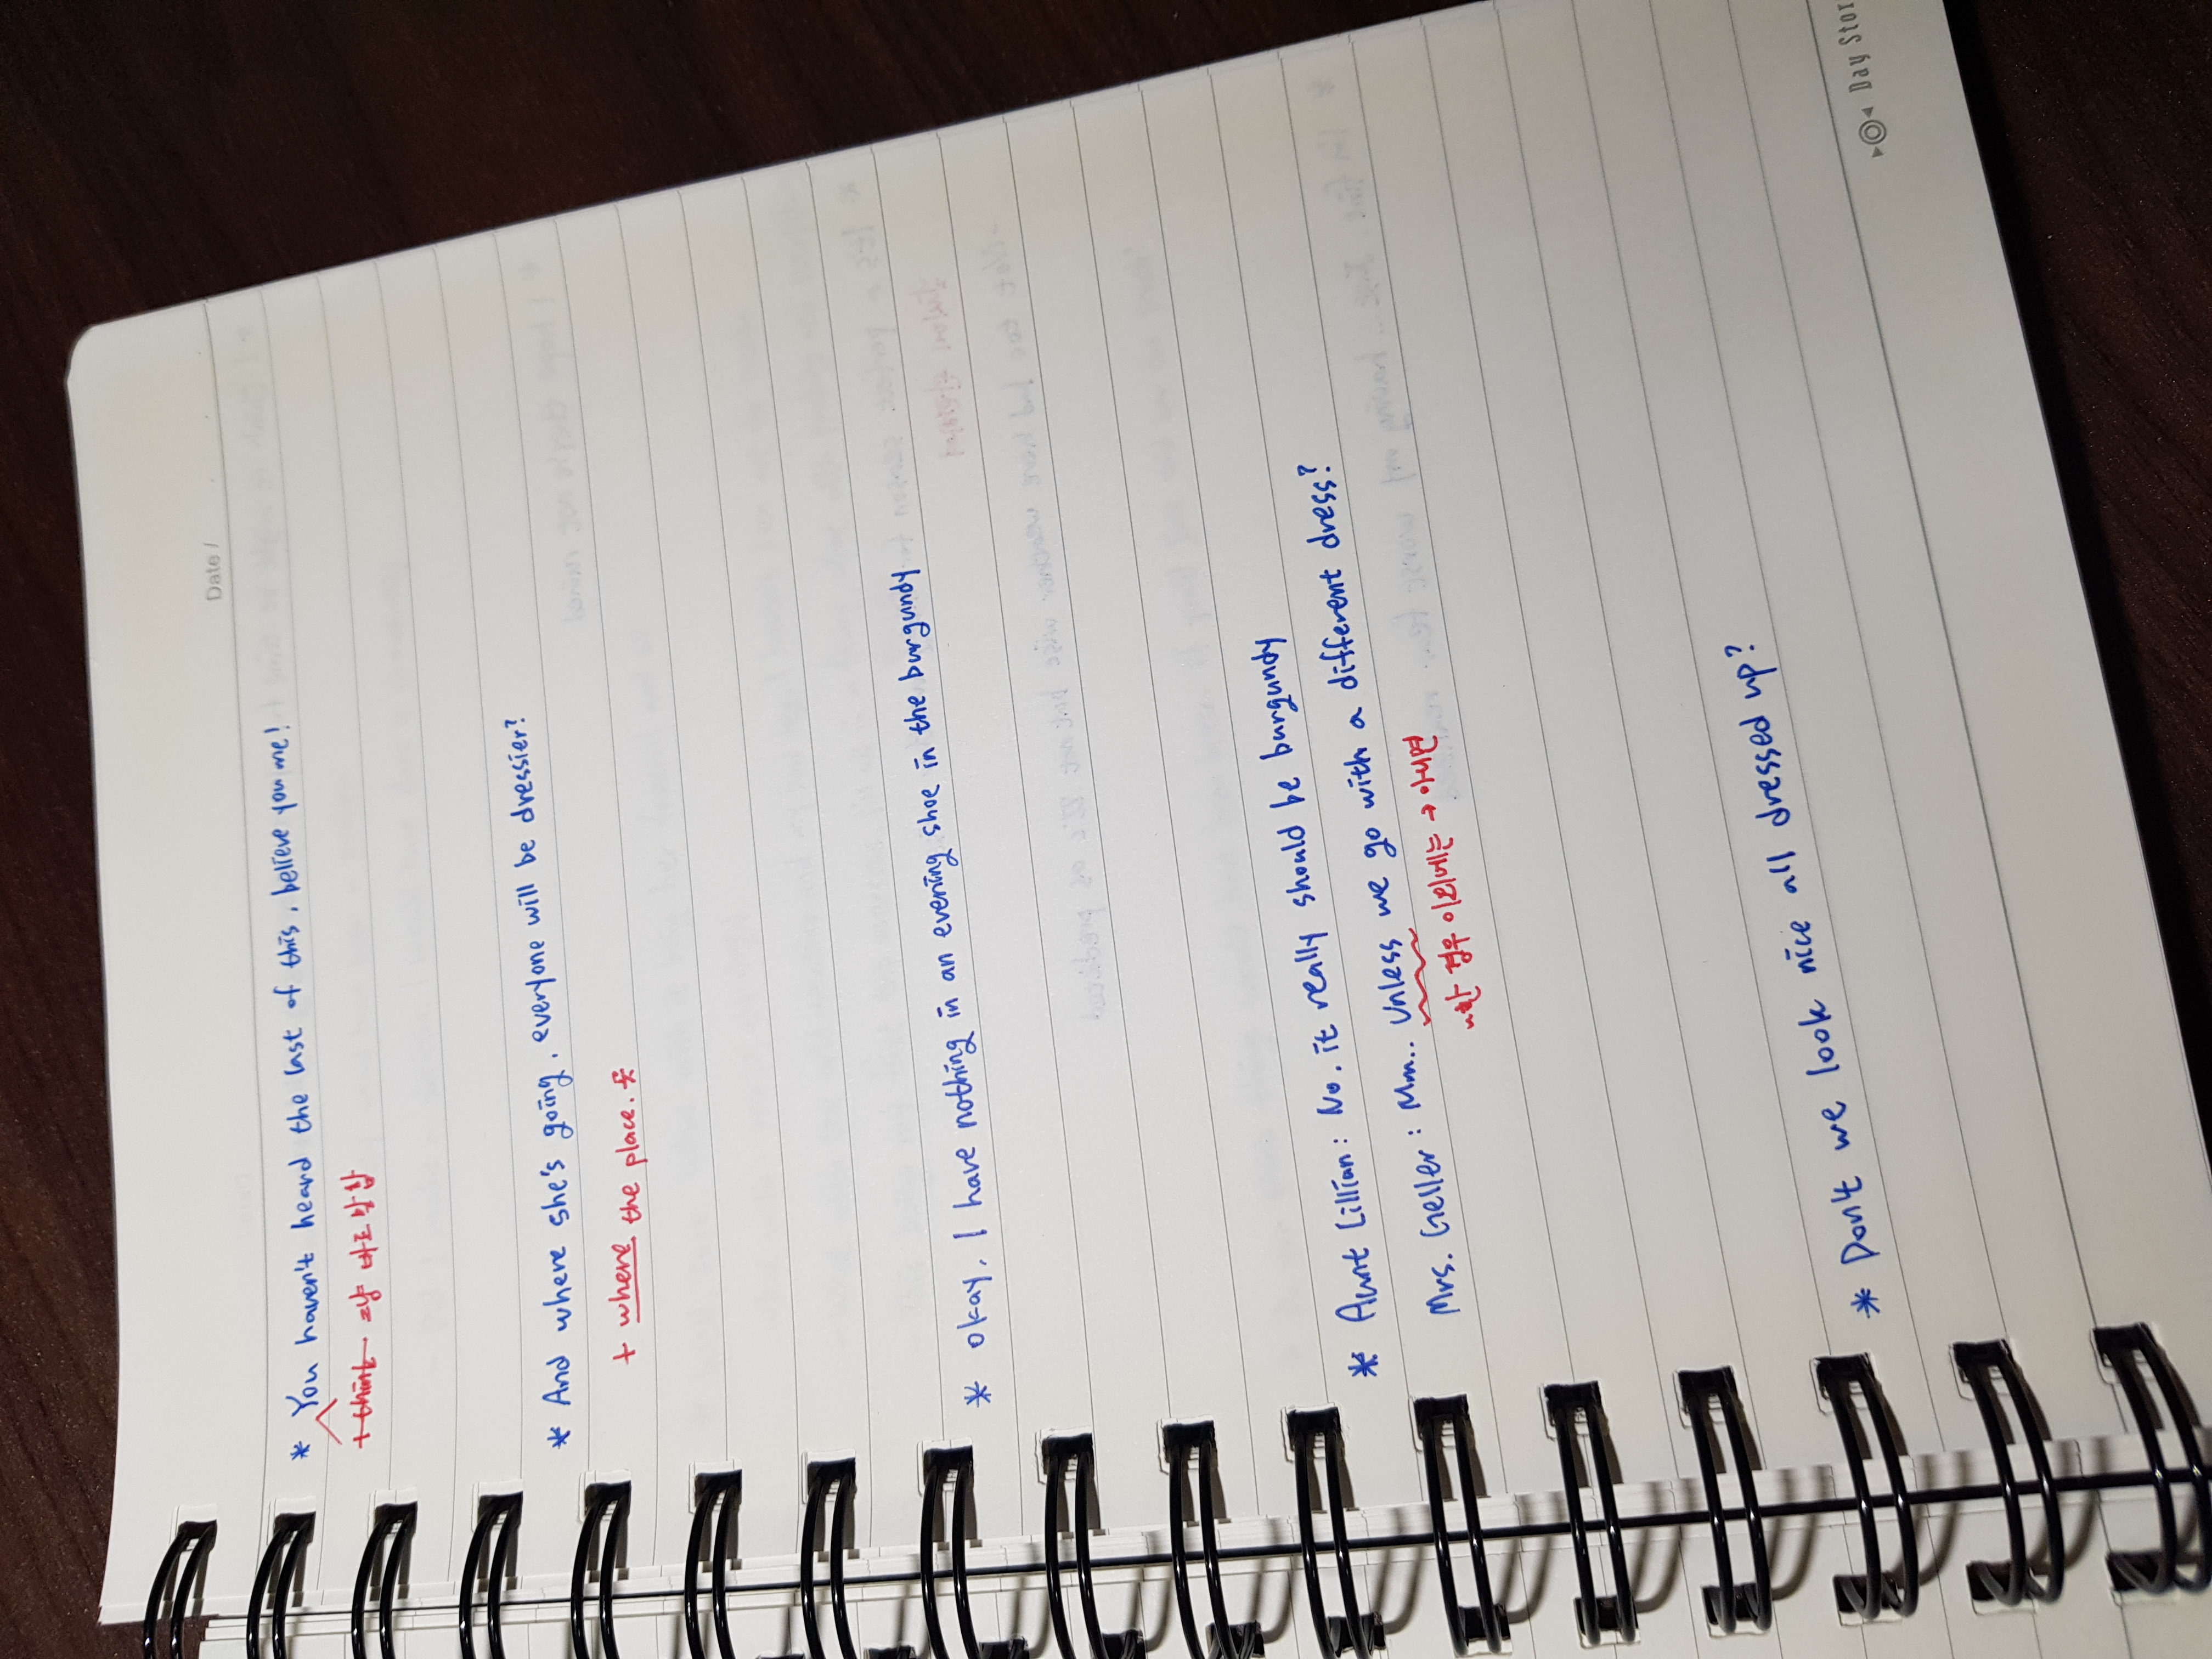 Date /
* You haven't heard the last of this, believe you me!
+ think 그냥 바로 말함
* And where she's going, everyone will be dressier?
+ where the place.
* okay, I have nothing in an evening shoe in the burgundy
* Aunt Lillian : No. it really should be burgundy
Mrs. Geller : Mm.. unless we go with a different dress?
경우 이외에는 → 아니면
* Don't we look nice all dressed up?
Day Stor